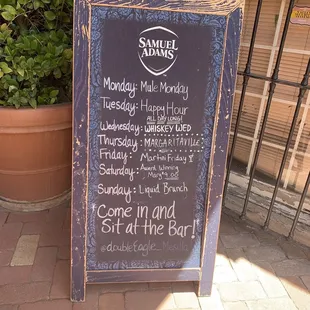 SAMUEL
ADAMS
Monday: Mule Monday
Tuesday: Happy Hour
ALL DAY LONG!
Wednesday: WHISKEY WED
Thursday: MARGARITAVILLE
Friday: Martini Friday
Saturday: Award Winning
Mary's
Sunday: Liquid Brunch
Come in and
Sit at the Bar!
@doubleEagle_